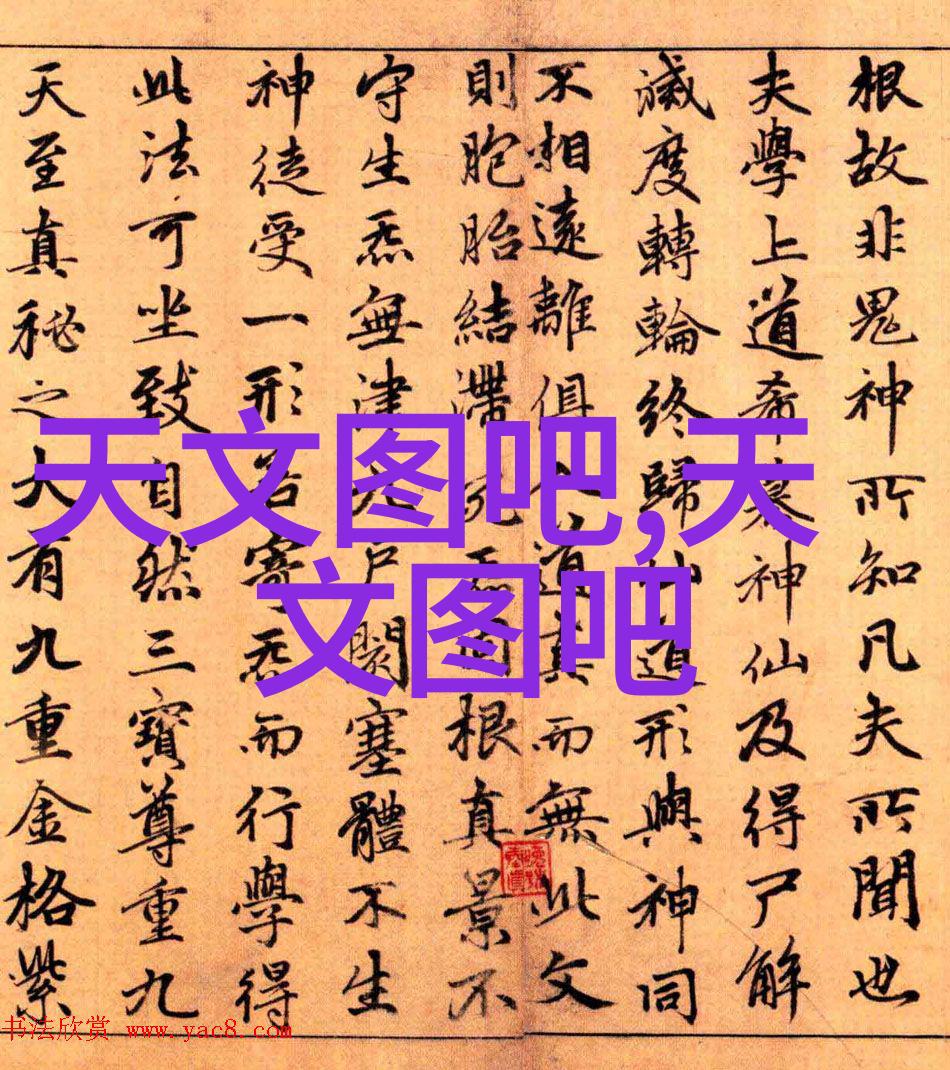 根故非鬼神所知凡夫所聞也
夫學上道希慕神仙及得尸解
滅度轉輪終歸仙道形與神同
不相遠離俱入道真而無此文
則胞胎結滯死炁固根真景不
守生炁無津九戶閡塞體不生
神徒受一形若寄炁而行學得
此法可坐致自然三寶尊重九
天至真秘之大有九重金格紫
天文图吧,天
文图吧
书法欣赏 www.yac8.com